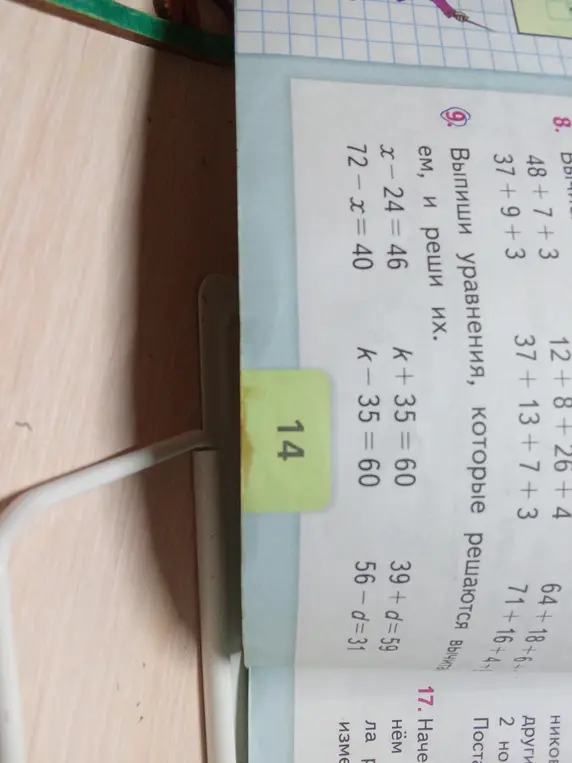 8.
48 + 7 + 3 12 + 8 + 26 + 4 64 + 18 + 6 +
37 + 9 + 3 37 + 13 + 7 + 3 71 + 16 + 4 +
9. Выпиши уравнения, которые решаются вычита
ем, и реши их.
x − 24 = 46 k + 35 = 60 39 + d = 59
72 − x = 40 k − 35 = 60 56 − d = 31
14
ников
други
2 но
Поста
17. Наче
нём
ла р
изме